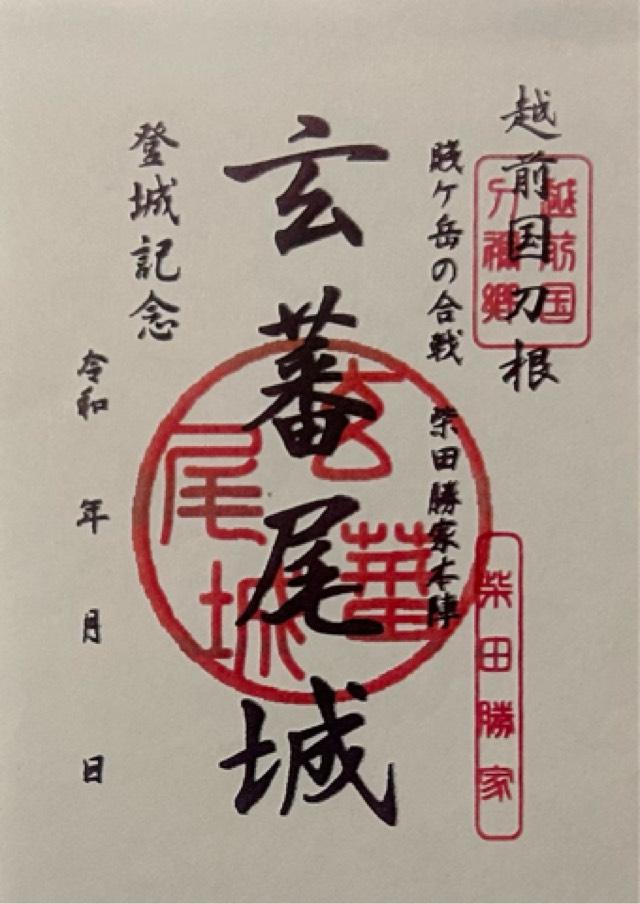 越前国刀根
越前国
賤ケ岳の合戦 柴田勝家本陣
柴田勝家
玄蕃尾城
玄蕃
尾城
登城記念
令和 年 月 日